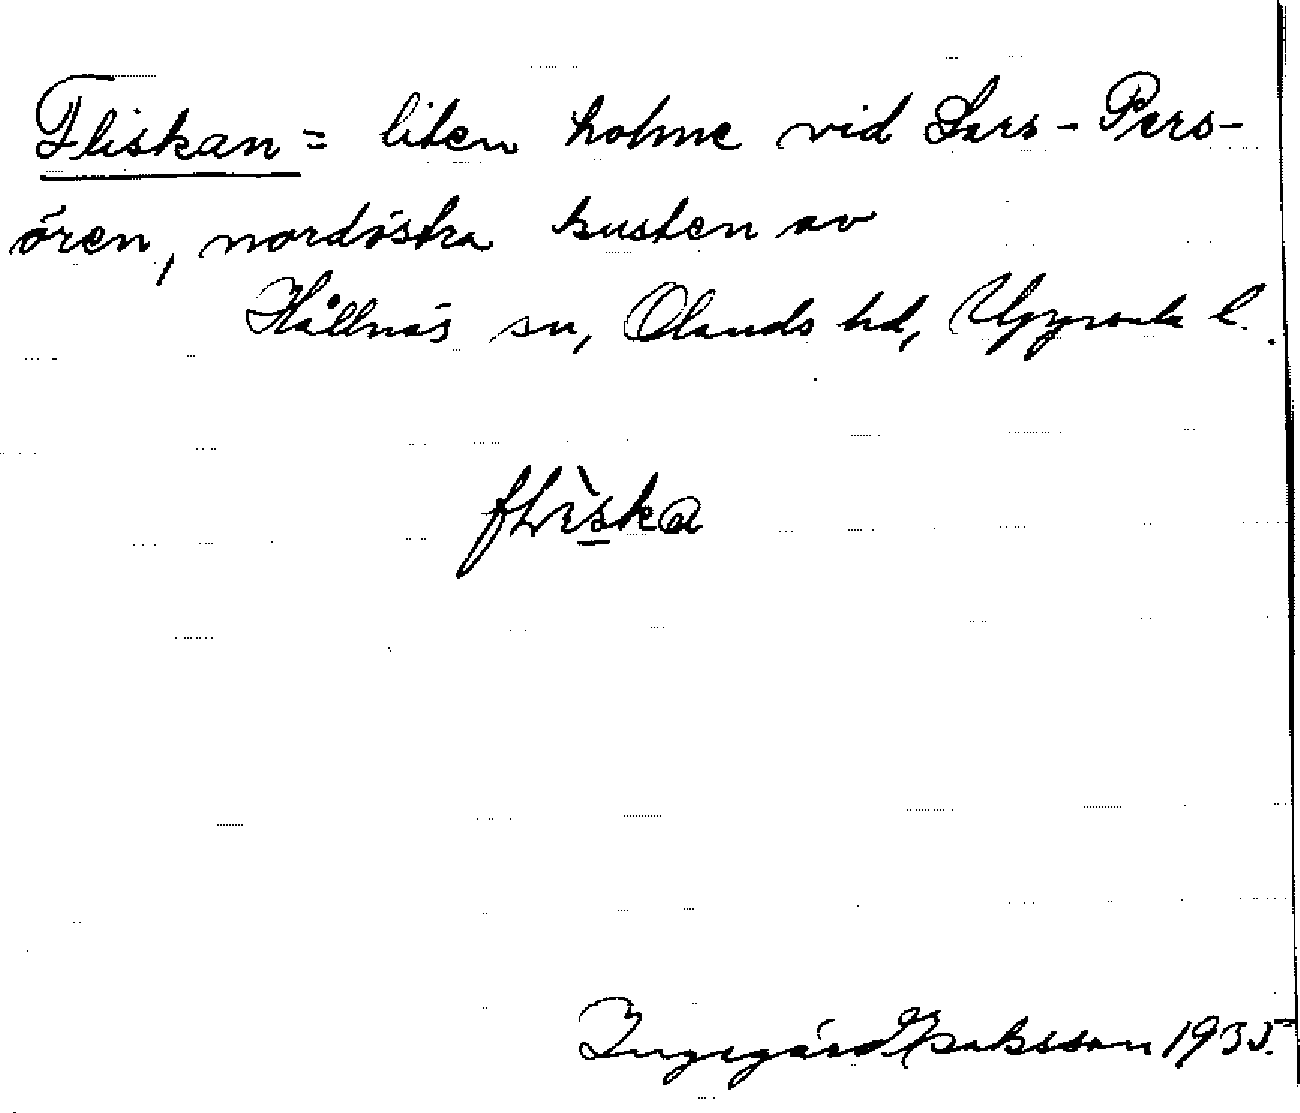 Fliskan = liten holme vid Lars-Pers-
ören, nordöstra kusten av
Hållnäs sn, Olands hd, Uppsala l.
flìska
Ingegärd Isaksson 1935.